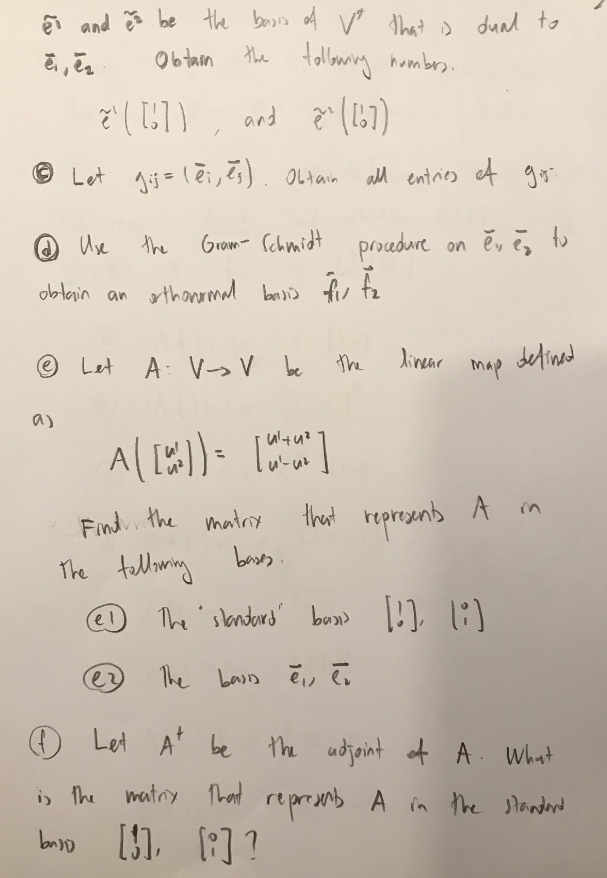 ẽ¹ and ẽ² be the basis of V* that is dual to
ē₁, ē₂. Obtain the following numbers.
ẽ¹([1 0]), and ẽ²([1 0])
ⓒ Let gij = (ēi, ēj). Obtain all entries of gij
ⓓ Use the Gram-Schmidt procedure on ē₁, ē₂ to
obtain an orthonormal basis f̄₁, f̄₂
ⓔ Let A: V → V be the linear map defined
as
A([u¹ u²]) = [u¹+u² u¹-u²]
Find the matrix that represents A in
the following bases:
(e1) The "standard" basis [1 0], [0 1]
(e2) The basis ē₁, ē₂
ⓕ Let A† be the adjoint of A. What
is the matrix that represents A in the standard
basis [1 0], [0 1]?